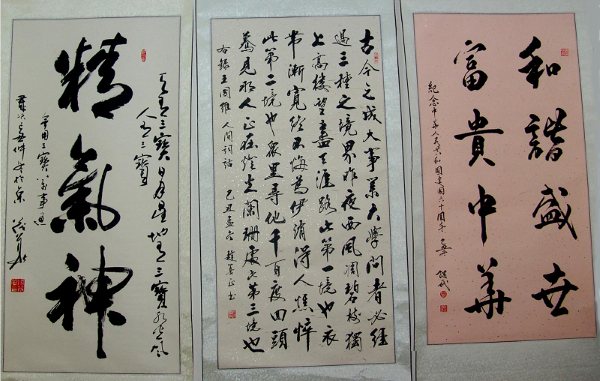 和諧盛世
富貴中華
紀念中華人民共和國建國六十周年
古今之成大事業大學問者必經
過三種之境界昨夜西風凋碧樹獨
上高樓望盡天涯路此第一境也衣
帶漸寬終不悔為伊消得人憔悴
此第二境也眾里尋他千百度回頭
驀見那人正在燈火闌珊處此第三境也
右錄王國維人間詞話 己丑孟冬
天有三寶日月星地有三寶水火風
人有三寶
精氣神